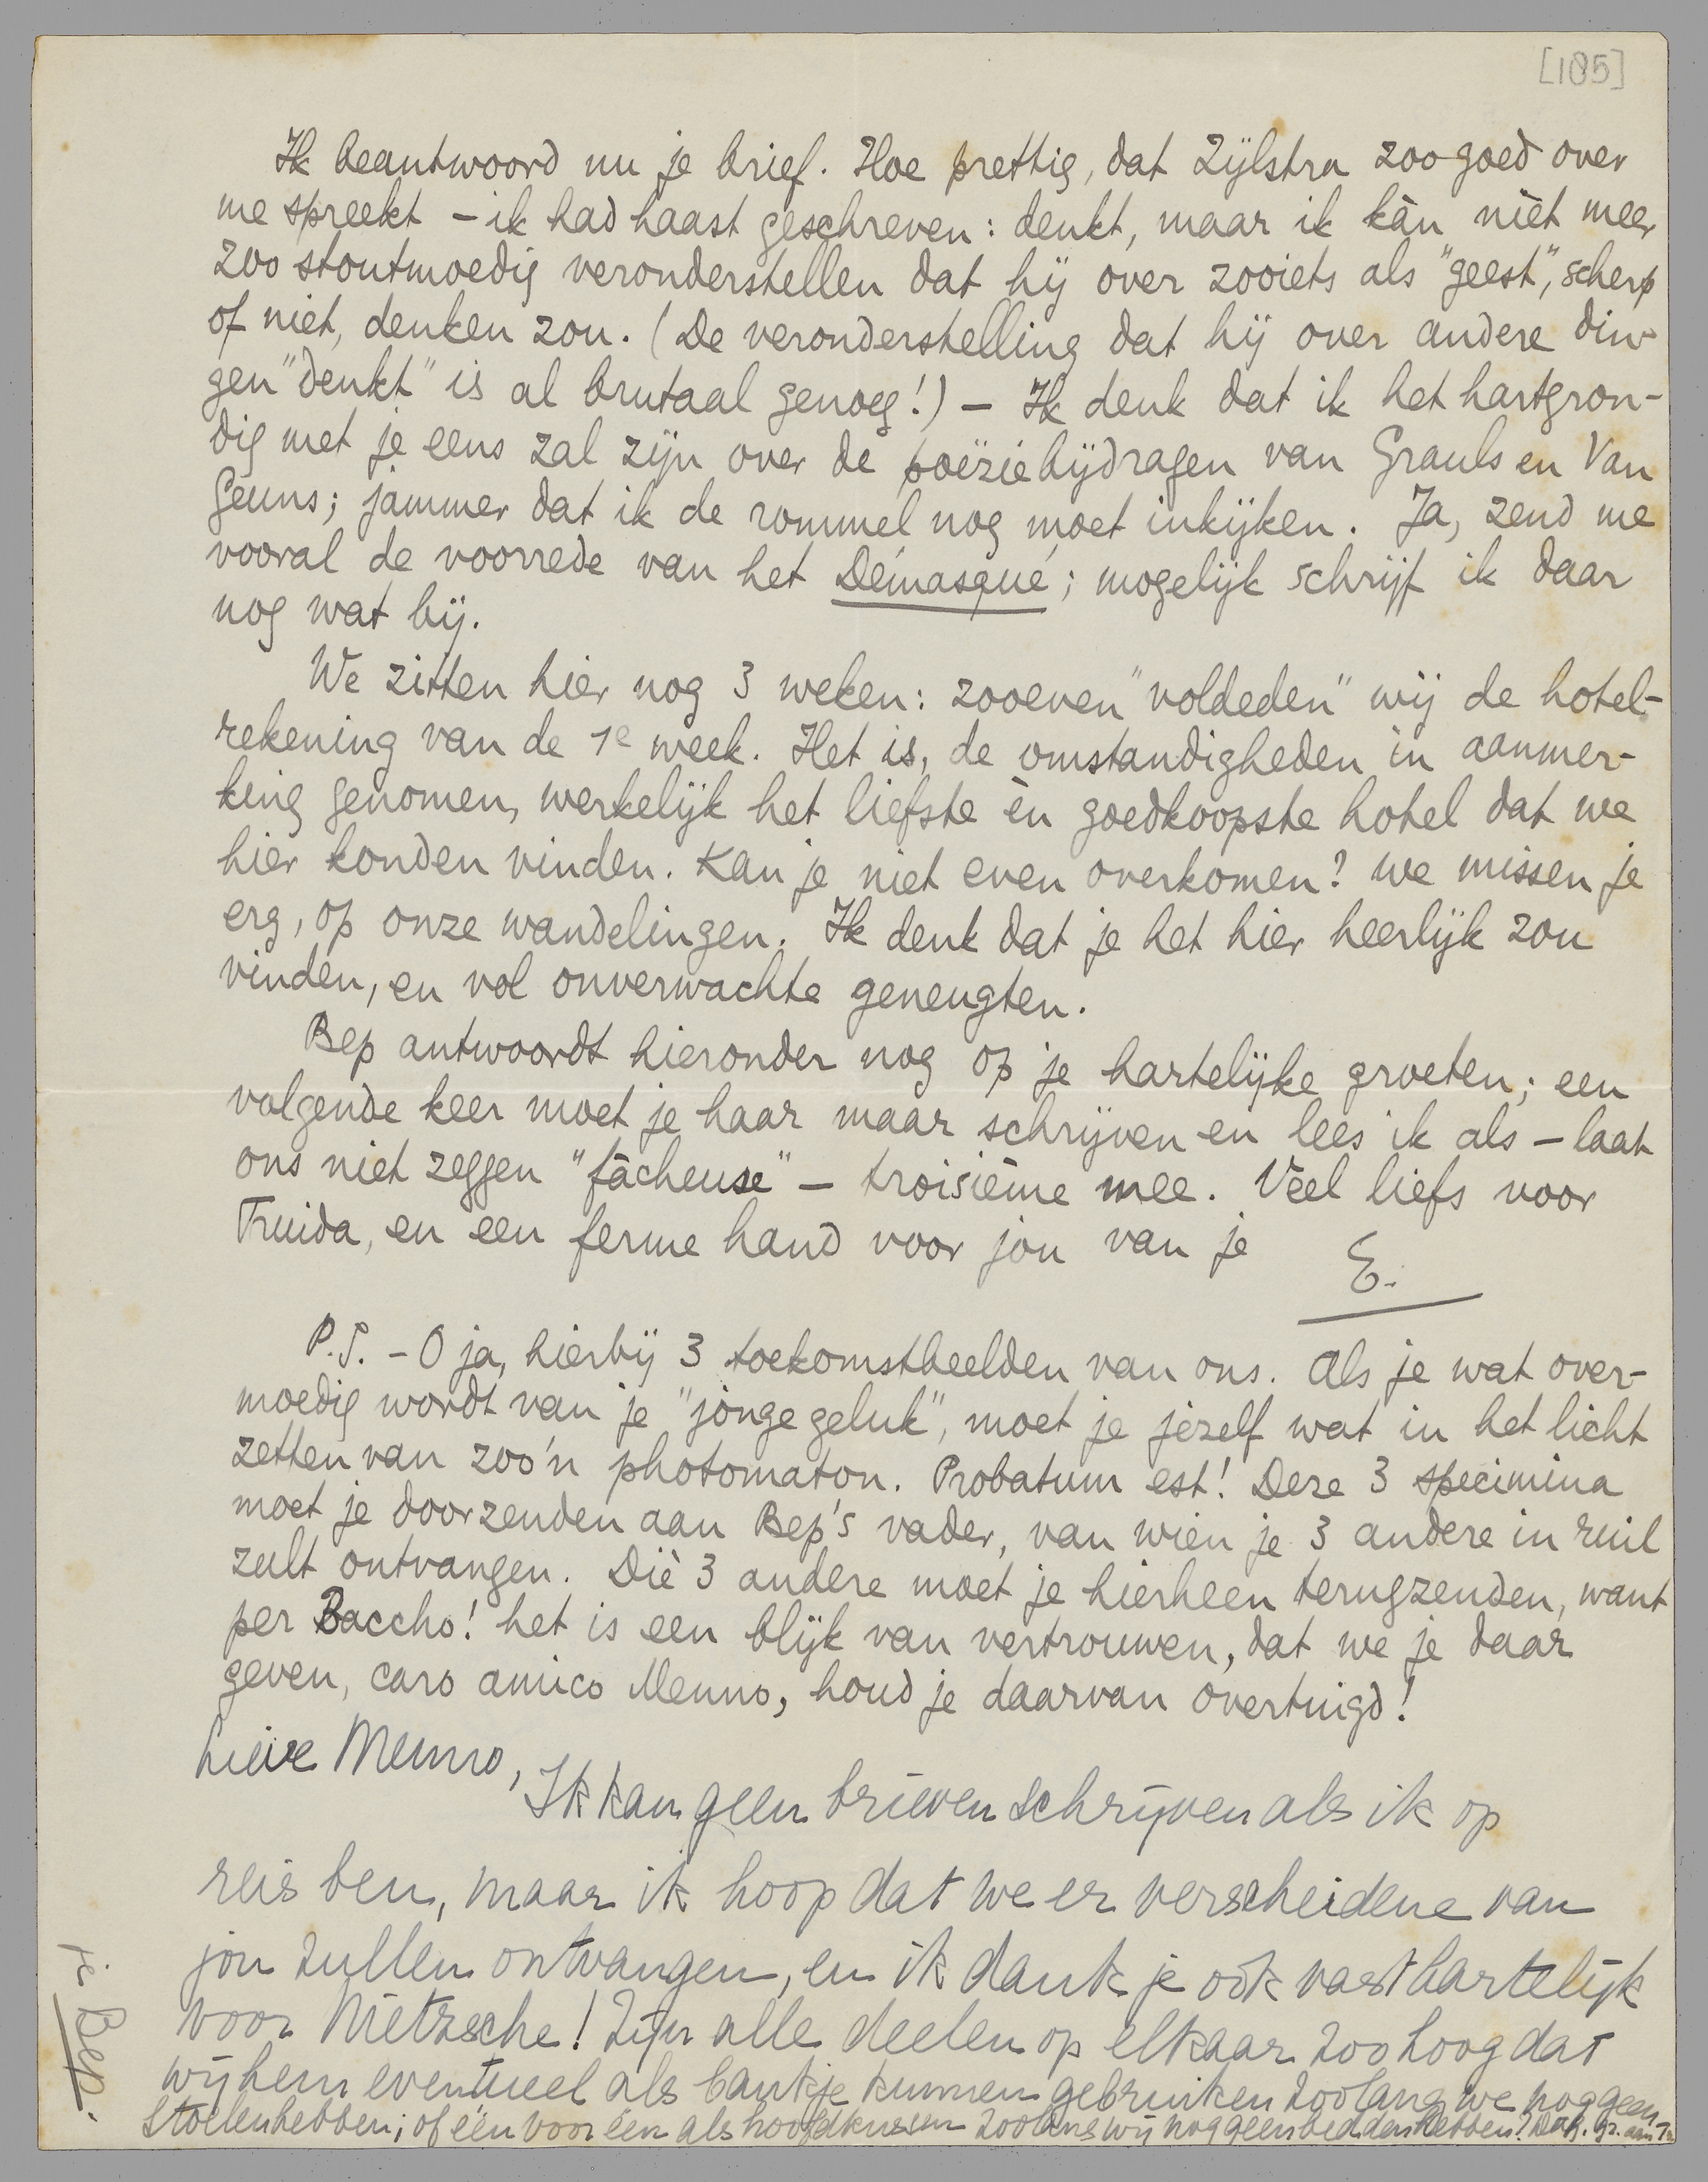 [185]
Ik beantwoord nu je brief. Hoe prettig, dat Zijlstra zoo goed over
me spreekt – ik had haast geschreven: denkt, maar ik kàn nièt meer
zoo stoutmoedig veronderstellen dat hij over zooiets als "geest", scherp
of niet, denken zou. (De veronderstelling dat hij over andere din-
gen "denkt" is al brutaal genoeg!) – Ik denk dat ik het hartgron-
dig met je eens zal zijn over de poëziebijdragen van Grauls en Van
Geuns; jammer dat ik de rommel nog moet inkijken. Ja, zend me
vooral de voorrede van het Démasqué; mogelijk schrijf ik daar
nog wat bij.
We zitten hier nog 3 weken: zooeven "voldeden" wij de hotel-
rekening van de 1e week. Het is, de omstandigheden in aanmer-
king genomen, werkelijk het liefste èn goedkoopste hotel dat we
hier konden vinden. Kan je niet even overkomen? We missen je
erg, op onze wandelingen. Ik denk dat je het hier heerlijk zou
vinden, en vol onverwachte geneugten.
Bep antwoordt hieronder nog op je hartelijke groeten; een
volgende keer moet je haar maar schrijven en lees ik als – laat
ons niet zeggen "fâcheuse" – troisième mee. Veel liefs voor
Truida, en een ferme hand voor jou van je
E.
P.S. – O ja, hierbij 3 toekomstbeelden van ons. Als je wat over-
moedig wordt van je "jonge geluk", moet je jezelf wat in het licht
zetten van zoo'n photomaton. Probatum est! Deze 3 specimina
moet je doorzenden aan Bep's vader, van wien je 3 andere in ruil
zult ontvangen. Diè 3 andere moet je hierheen terugzenden, want
per Baccho! het is een blijk van vertrouwen, dat we je daar
geven, caro amico Menno, houd je daarvan overtuigd!
Lieve Menno,
Ik kan geen brieven schrijven als ik op
reis ben, maar ik hoop dat we er verscheidene van
jou zullen ontvangen, en ik dank je ook vast hartelijk
voor Nietzsche! Zijn alle deelen op elkaar zoo hoog dat
wij hem eventueel als bankje kunnen gebruiken zoolang we nog geen
stoelen hebben; of één voor één als hoofdkussen zoolang wij nog geen bedden hebben? Hart. gr. aan
je Bep.